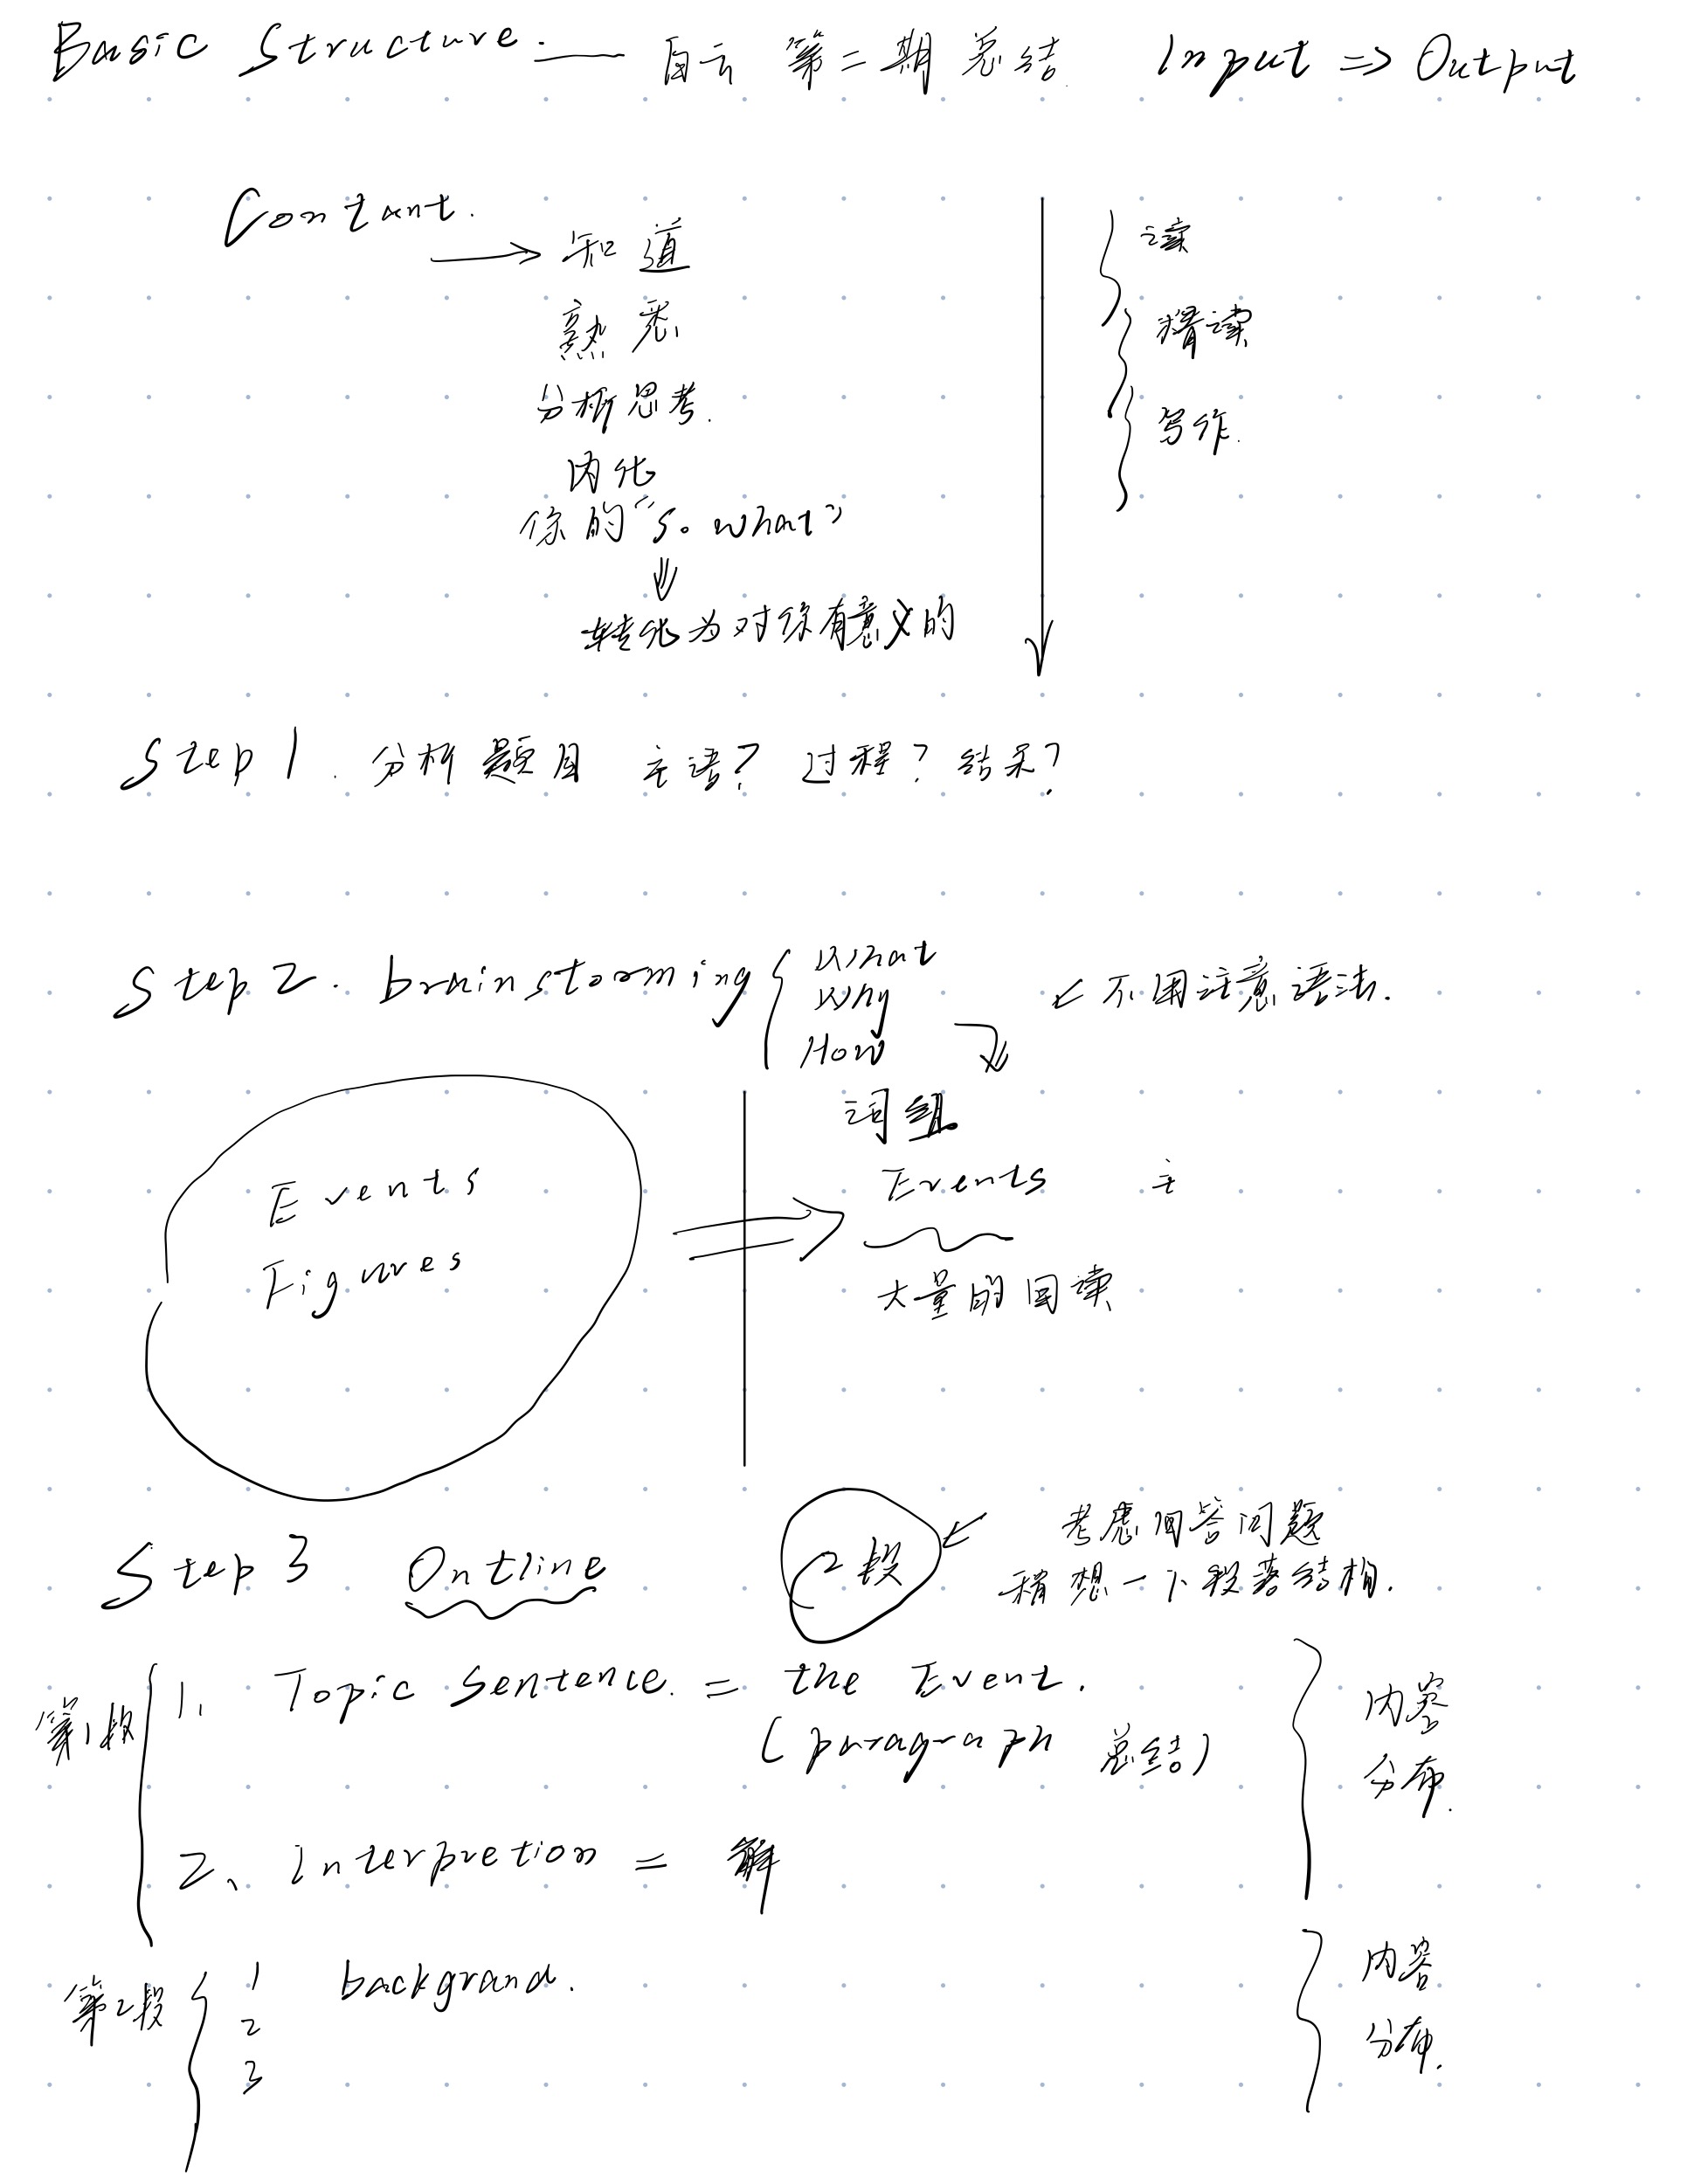 Basic Structure. —— 白云 第二期总结 Input => Output
Contant.
→ 知道
读
熟悉
精读
分析思考.
写作.
内化
你的“So what”
转化为对你有意义的
Step 1. 分析题目 主语? 过程? 结果?
Step 2. brainstorming { What
Why
How
← 不用注意语法.
词组
Events
Figures
Events 主
大量的回读
Step 3 Ontline 2段
← 考虑回答问题
稍想一下段落结构.
第1段
1. Topic sentence. = the Event.
(paragraph 总结)
内容
分布.
2、interpretion = 解
第2段
1 backgrand.
2
3
内容
分布.